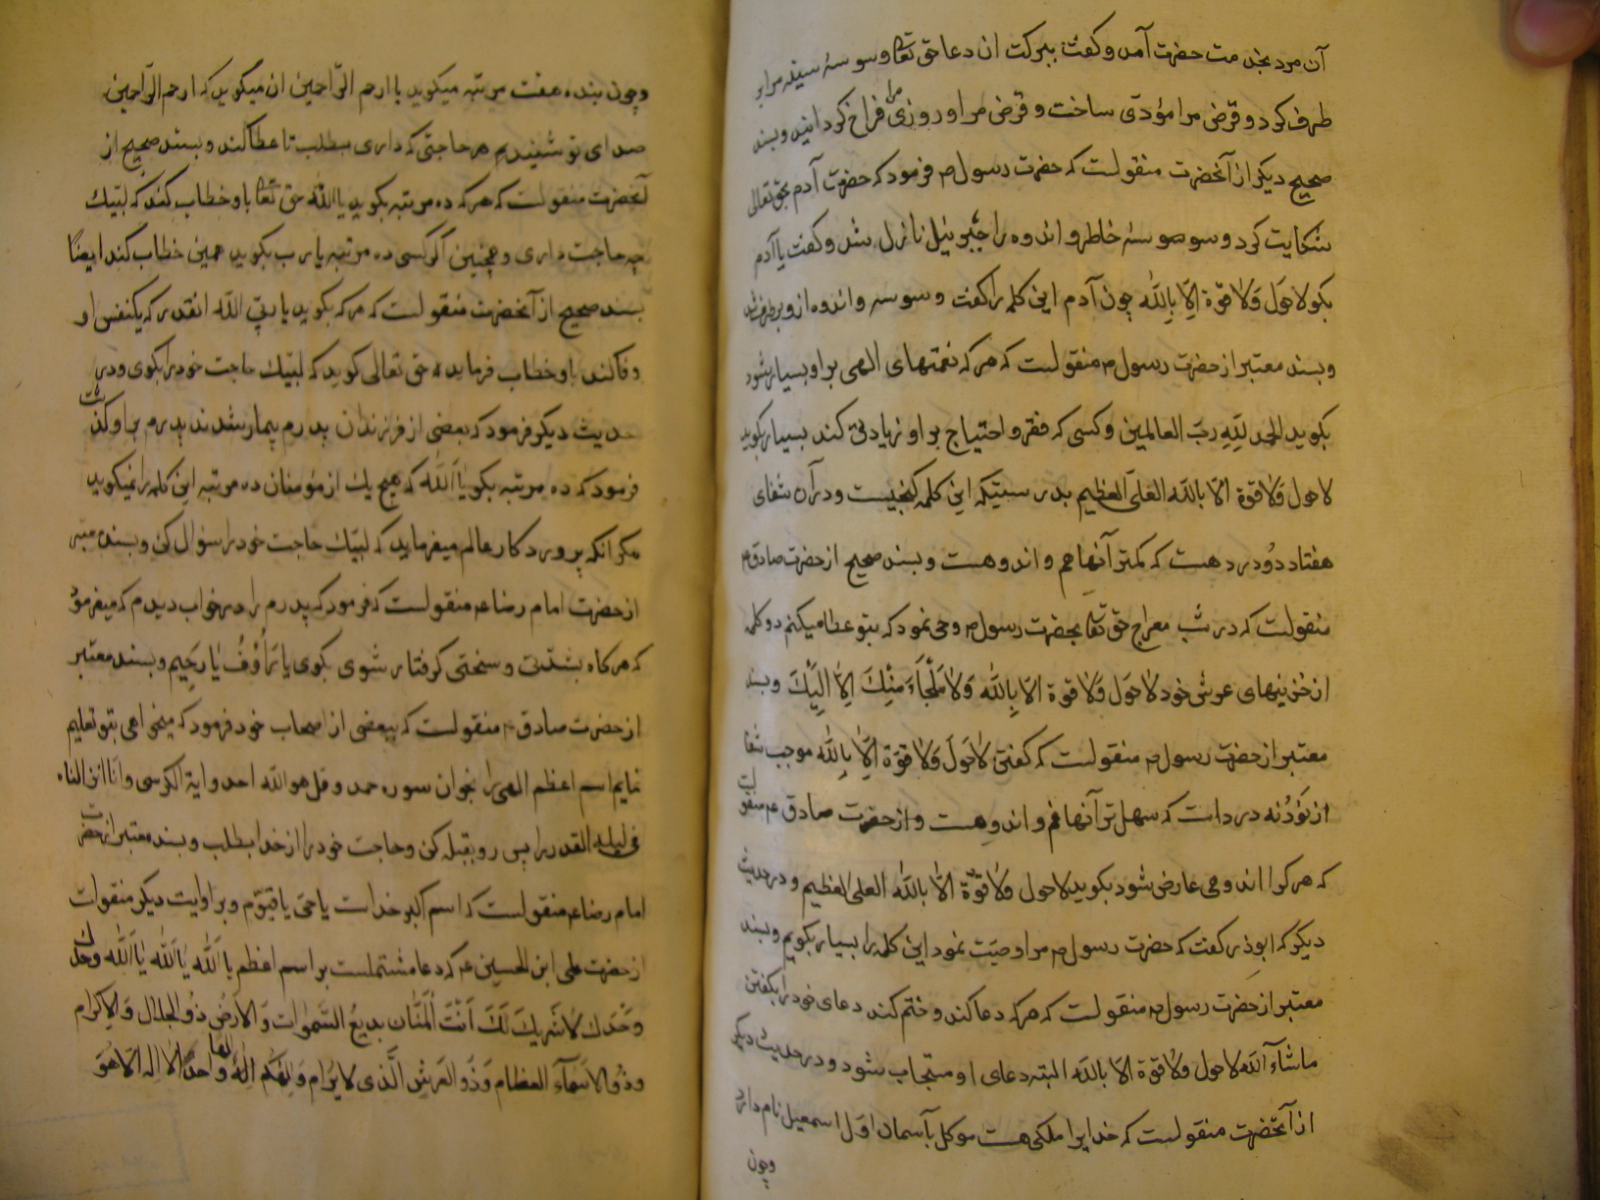 آن مرد بخدمت حضرت آمد و کفت ببرکت ان دعا حق تعا وسوسهٔ سینه مرا بر
طرف کرد و قرض مرا مؤدّی ساخت و قرض مرا و روزی مرا فراخ کردانید و بسند
صحیح دیکر از آنحضرت منقولست که حضرت رسول ص فرمود که حضرت آدم بحق تعالی
شکایت کرد وسوسهٔ خاطر و اندوه را جبرئیل نازل شد و کفت یا آدم
بکو لا حول وَلا قوة اِلّا بِاللّه چون آدم این کلمه را کفت وسوسه و اندوه از و برطرف شد
و بسند معتبر از حضرت رسول ص منقولست که هر که نعمتهای الهی بر او بسیار شود
بکوید الحمد لِلّهِ ربّ العالمین و کسی که فقر و احتیاج بر او زیادتی کند بسیار بکوید
لا حول وَلا قوة الّا باللّه العَلّی العظیم بدرستیکه این کلمه کنجیست و در آن شفای
هفتاد دُو درد هست که کمتر آنها هم و اندوهست و بسند صحیح از حضرت صادق ع
منقولست که در شب معراج حق تعا بحضرت رسول ص وحی نمود که بتو عطا میکنم دو کلمه
از خزینهای عرش خود لا حَول وَلا قوة الّا بِاللّه وَلا مَلْجَأَ مِنْكَ اِلاّ اِلَيْكَ و بسند
معتبر از حضرت رسول ص منقولست که کفتن لا حَولَ وَلا قوّة اِلّا بِاللّه موجب شفا
از نَوَدُنه درد است که سهل تر آنها غم و اندوهست و از حضرت صادق ع منقولست
که هر کرا اندوهی عارض شود بکوید لا حول ولا قوّة الّا باللّه العلی العظیم و در حدیث
دیکر که ابوذر کفت که حضرت رسول ص مرا وصیّت نمود این کلمه را بسیار بکویم و بسند
معتبر از حضرت رسول ص منقولست که هر که دعا کند و ختم کند دعای خود را بکفتن
ماشآءَ اللّه لا حول ولا قوّة الّا باللّه البته دعای او مستجاب شود و در حدیث دیکر
از آنحضرت منقولست که خدایرا ملکی هست موکل بآسمان اوّل اسمعیل نام دارد
وچون
وچون بنده هفت مرتبه میکوید یا ارحم الرّاحمین ان میکوید که ارحم الرّاحمین
صدای تو شنیدیم هر حاجتی که داری بطلب تا عطا کند و بسند صحیح از
آنحضرت منقولست که هر که ده مرتبه بکوید یا اللّه حق تعا باو خطاب کند که لبّیك
چه حاجت داری و همچنین اکر کسی ده مرتبه یا رب بکوید همین خطاب کند ایضاً
بسند صحیح از آنحضرت منقولست که هر که بکوید یا ربّی اللّه انقدر که یکنفس او
وفا کند باو خطاب فرماید حق تعالی کوید که لبّیك حاجت خود را بکوی و در
حدیث دیکر فرمود که بعضی از فرزندان پدرم بیمار شدند پدرم بر او کذشت
فرمود که ده مرتبه بکو یا اَللّه که هیچ یك از مؤمنان ده مرتبه این کلمه را نمیکوید
مکر انکه پرورد کار عالم میفرماید که لبّیك حاجت خود را سؤال کن و بسند معتبر
از حضرت امام رضا ع منقولست که فرمود که پدرم را در خواب دیدم که میفرمود
که هر کاه بشدّتی و سختی کرفتار شوی بکوی یا رَؤُفُ یا رَحِیم و بسند معتبر
از حضرت صادق ع منقولست که ببعضی از اصحاب خود فرمود که میخواهی بتو تعلیم
نمایم اسم اعظم الهی را بخوان سوره حمد و قل هو اللّه احد و ایة الکرسی و انّا انزلناه
فی لیلة القدر را پس رو بقبله کن و حاجت خود را از خدا بطلب و بسند معتبر از حضرت
امام رضا ع منقولست که اسم اکبر خداست یا حیّ یا قیّوم و بروایت دیکر منقولست
از حضرت علی ابن الحسین ع که دعا مشتملست بر اسم اعظم یا اَللّه یا اَللّه یا اَللّه وحدك
وَحْدَك لا شریكَ لَكَ اَنْتَ الْمَنّان بدیعُ السّموات وَ الاَرضِ ذُو الجلال وَ الاِکرام
و ذُو الاَسمآءِ العظام وَ ذُو العَرشِ الَّذی لا یُرام وَ اِلهُکُم اِلهٌ وَاحِدٌ لا اله الّا هُوَ